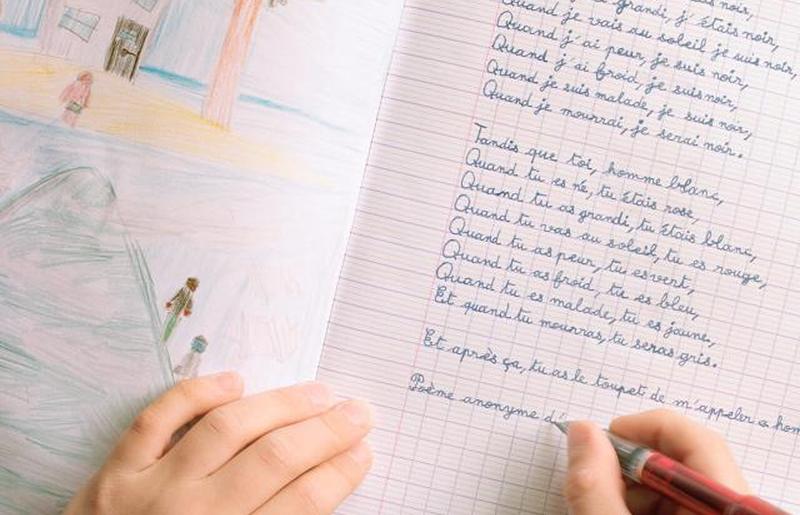 noir,
grandi, j'étais noir,
Quand je vais au soleil je suis noir,
Quand j'ai peur, je suis noir,
Quand j'ai froid, je suis noir,
Quand je suis malade, je suis noir,
Quand je mourrai, je serai noir.
Tandis que toi, homme blanc,
Quand tu es né, tu étais rose,
Quand tu as grandi, tu étais blanc,
Quand tu vas au soleil, tu es rouge,
Quand tu as peur, tu es vert,
Quand tu as froid, tu es bleu,
Quand tu es malade, tu es jaune,
Et quand tu mourras, tu seras gris.
Et après ça, tu as le toupet de m'appeler « hom
Poème anonyme d'